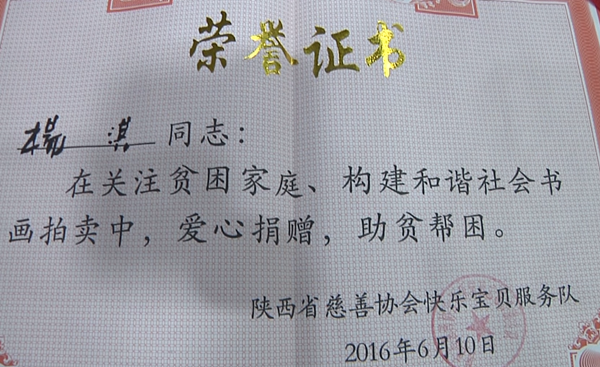 荣誉证书
楊淇同志：
在关注贫困家庭、构建和谐社会书
画拍卖中，爱心捐赠，助贫帮困。
陕西省慈善协会快乐宝贝服务队
2016年6月10日